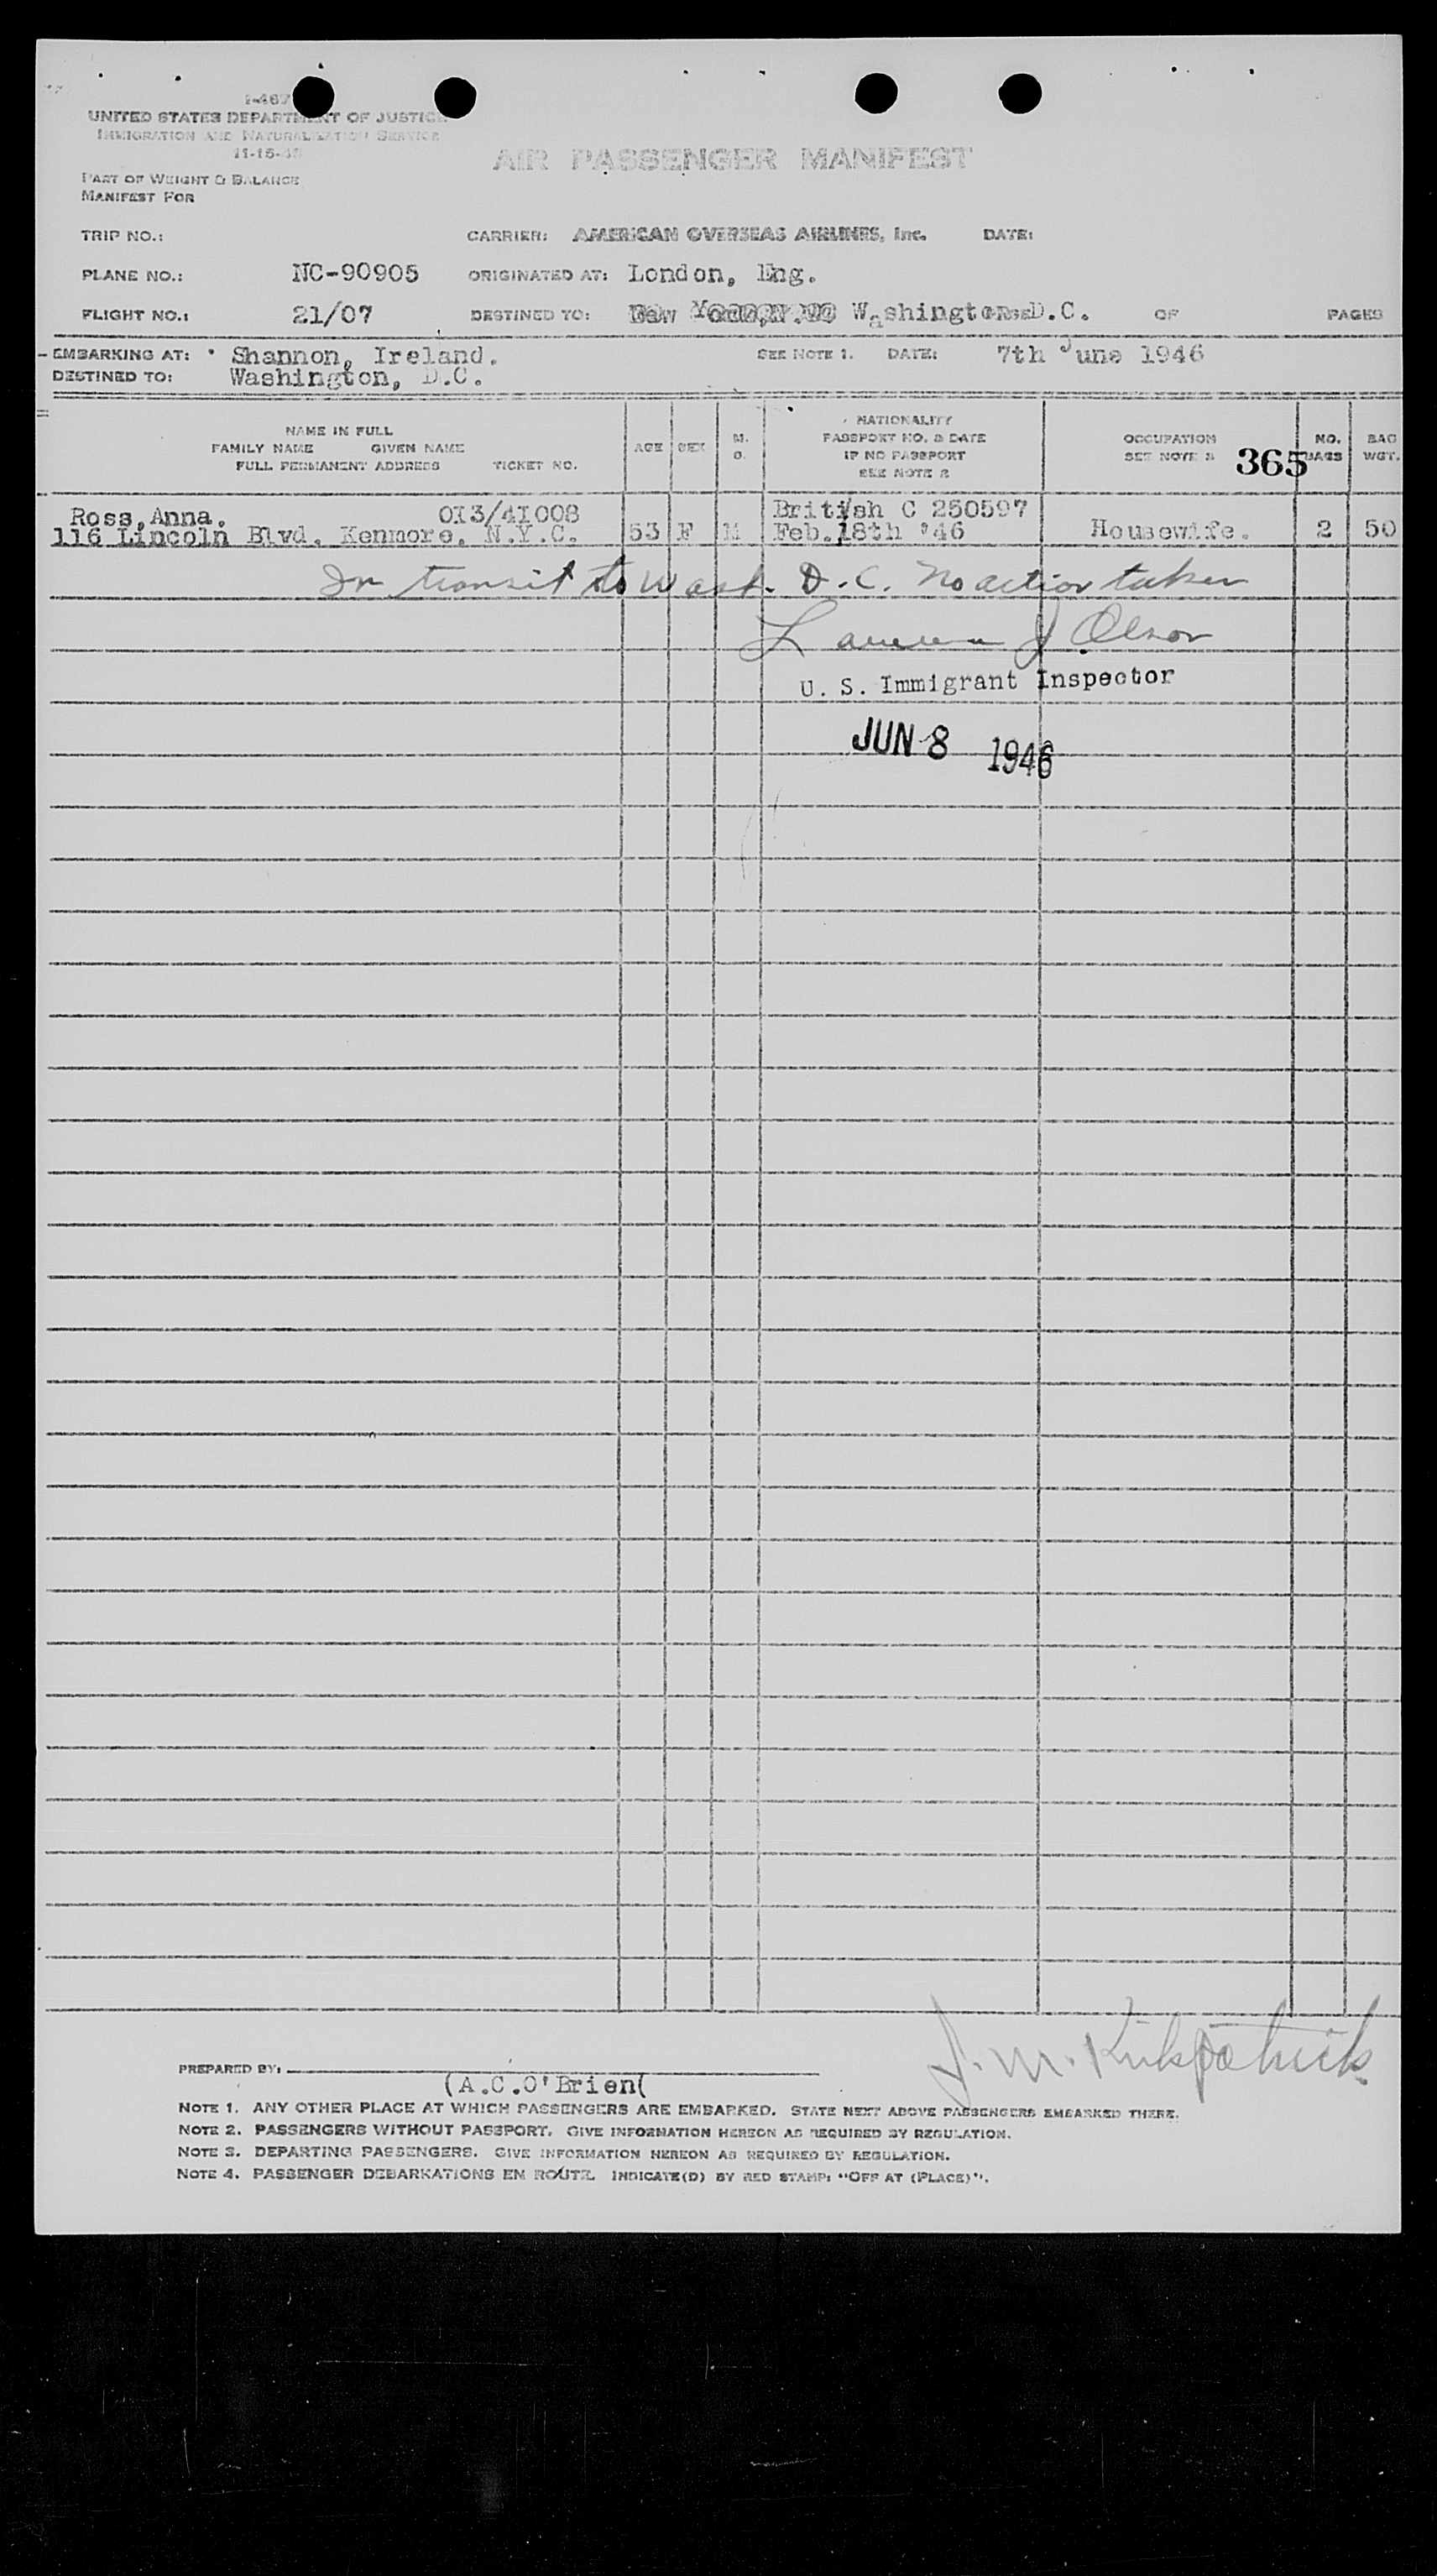 I-467
UNITED STATES DEPARTMENT OF JUSTICE
IMMIGRATION AND NATURALIZATION SERVICE
11-15-45
AIR PASSENGER MANIFEST
PART OF WEIGHT & BALANCE
MANIFEST FOR
TRIP NO.: CARRIER: AMERICAN OVERSEAS AIRLINES, Inc. DATE:
PLANE NO.: NC-90905 ORIGINATED AT: London, Eng.
FLIGHT NO.: 21/07 DESTINED TO: New York, Washington D.C. OF PAGES
EMBARKING AT: Shannon, Ireland. SEE NOTE 1. DATE: 7th June 1946
DESTINED TO: Washington, D.C.
NAME IN FULL
FAMILY NAME GIVEN NAME
FULL PERMANENT ADDRESS TICKET NO.
AGE SEX M. S.
NATIONALITY
PASSPORT NO. & DATE
IF NO PASSPORT
SEE NOTE 2
OCCUPATION
SEE NOTE 3 365
NO. BAGS
BAG WGT.
Ross, Anna. 013/41008 British C 250597
116 Lincoln Blvd. Kenmore. N.Y.C. 53 F M Feb. 18th '46 Housewife. 2 50
In transit to Wash. D.C. No action taken
J Olson
U. S. Immigrant Inspector
JUN 8 1946
J. M. Kirkpatrick
PREPARED BY:
(A.C.O'Brien(
NOTE 1. ANY OTHER PLACE AT WHICH PASSENGERS ARE EMBARKED. STATE NEXT ABOVE PASSENGERS EMBARKED THERE.
NOTE 2. PASSENGERS WITHOUT PASSPORT. GIVE INFORMATION HEREON AS REQUIRED BY REGULATION.
NOTE 3. DEPARTING PASSENGERS. GIVE INFORMATION HEREON AS REQUIRED BY REGULATION.
NOTE 4. PASSENGER DEBARKATIONS EN ROUTE. INDICATE(D) BY RED STAMP: "OFF AT (PLACE)".